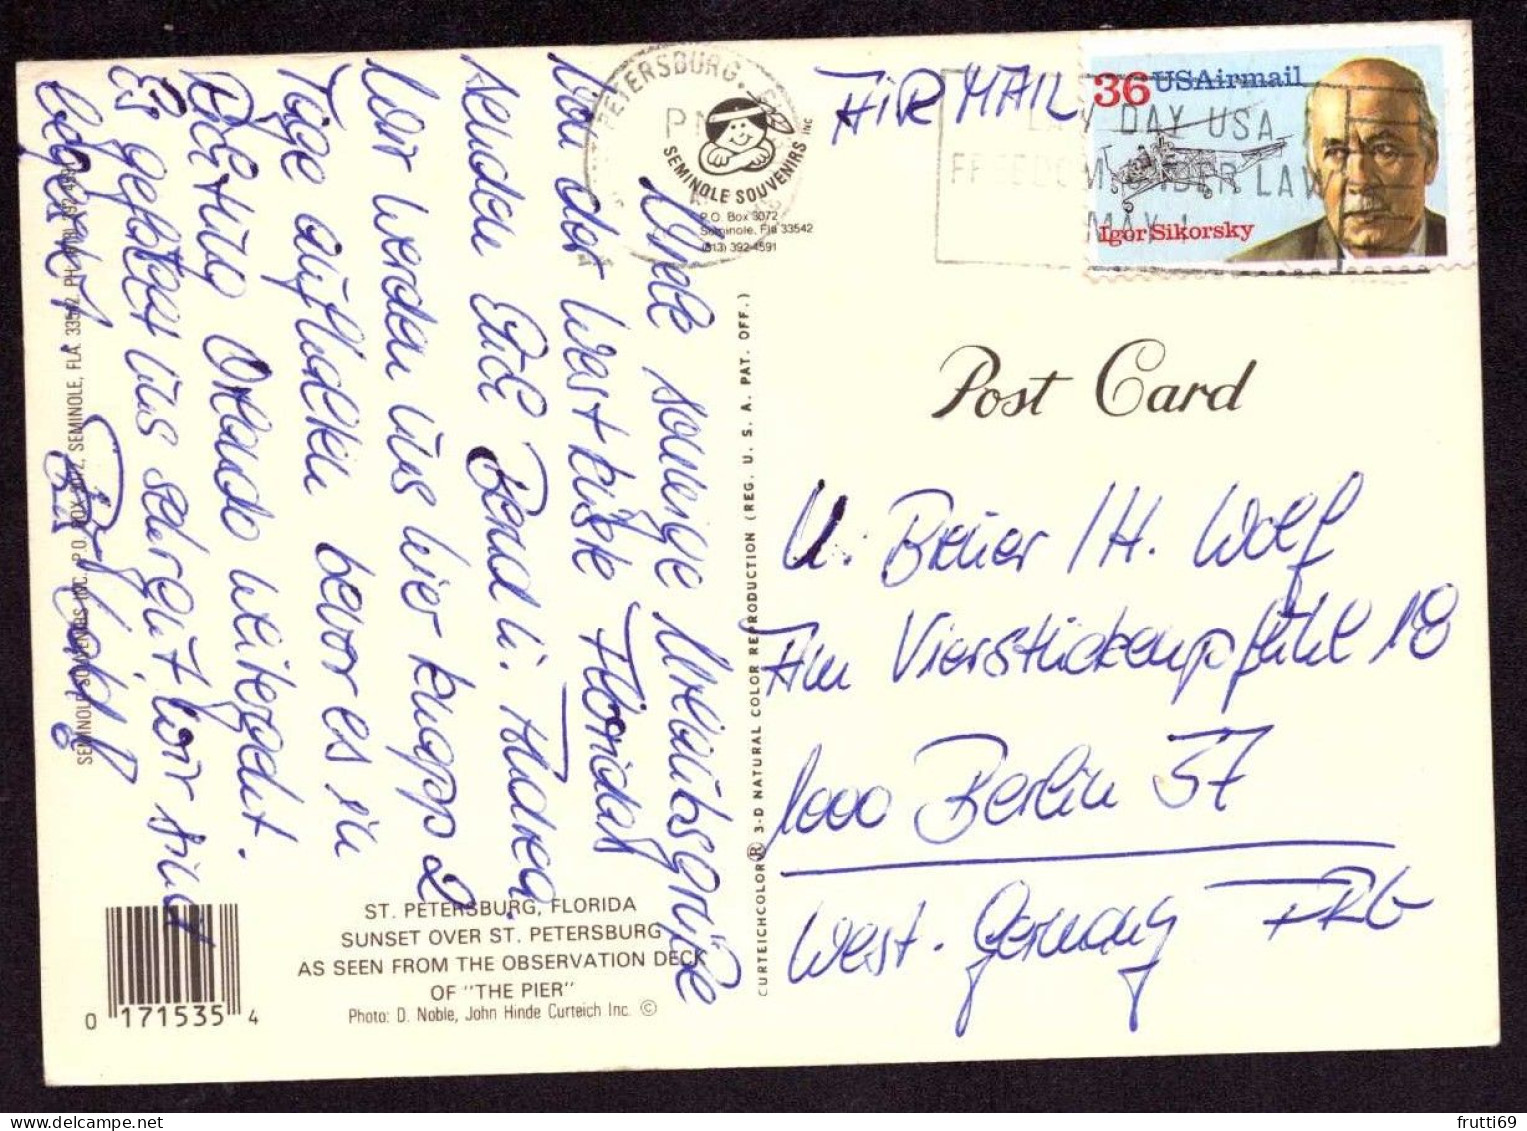 Viele sonnige Urlaubsgrüße
Von der Westküste Floridas
senden Euch Bernd u. Andrea.
Wir werden uns hier knapp 2
Tage aufhalten bevor es in
Richtung Orlando weitergeht.
Es gefällt uns sehr gut wir sind
begeistert.
ST. PETERSBURG, FLORIDA
SUNSET OVER ST. PETERSBURG
AS SEEN FROM THE OBSERVATION DECK
OF "THE PIER"
Photo: D. Noble, John Hinde Curteich Inc. ©
0 171535 4
SEMINOLE SOUVENIRS INC. P.O. BOX 3072, SEMINOLE, FLA. 33542 PH. (813) 392-4591
ST PETERSBURG,
PM
SEMINOLE SOUVENIRS INC
P.O. Box 3072
Seminole, Fla 33542
(813) 392-4591
CURTEICHCOLOR ® 3-D NATURAL COLOR REPRODUCTION (REG. U. S. A. PAT. OFF.)
AIR MAIL
36 USAirmail
Igor Sikorsky
LAW DAY USA
FREEDOM UNDER LAW
MAY 1
Post Card
U. Breuer / H. Wolf
Am Vierstückenpfuhl 18
1000 Berlin 37
West. Germany FRG
frutti69